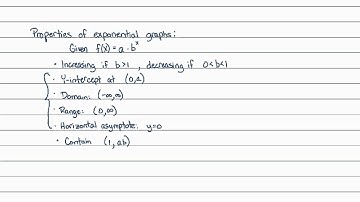 Properties of exponential graphs:
Given f(x) = a · b^x
• Increasing if b>1 , decreasing if 0<b<1
• Y-intercept at (0,a)
• Domain: (-∞,∞)
• Range: (0,∞)
• Horizontal asymptote: y=0
• Contain (1, ab)